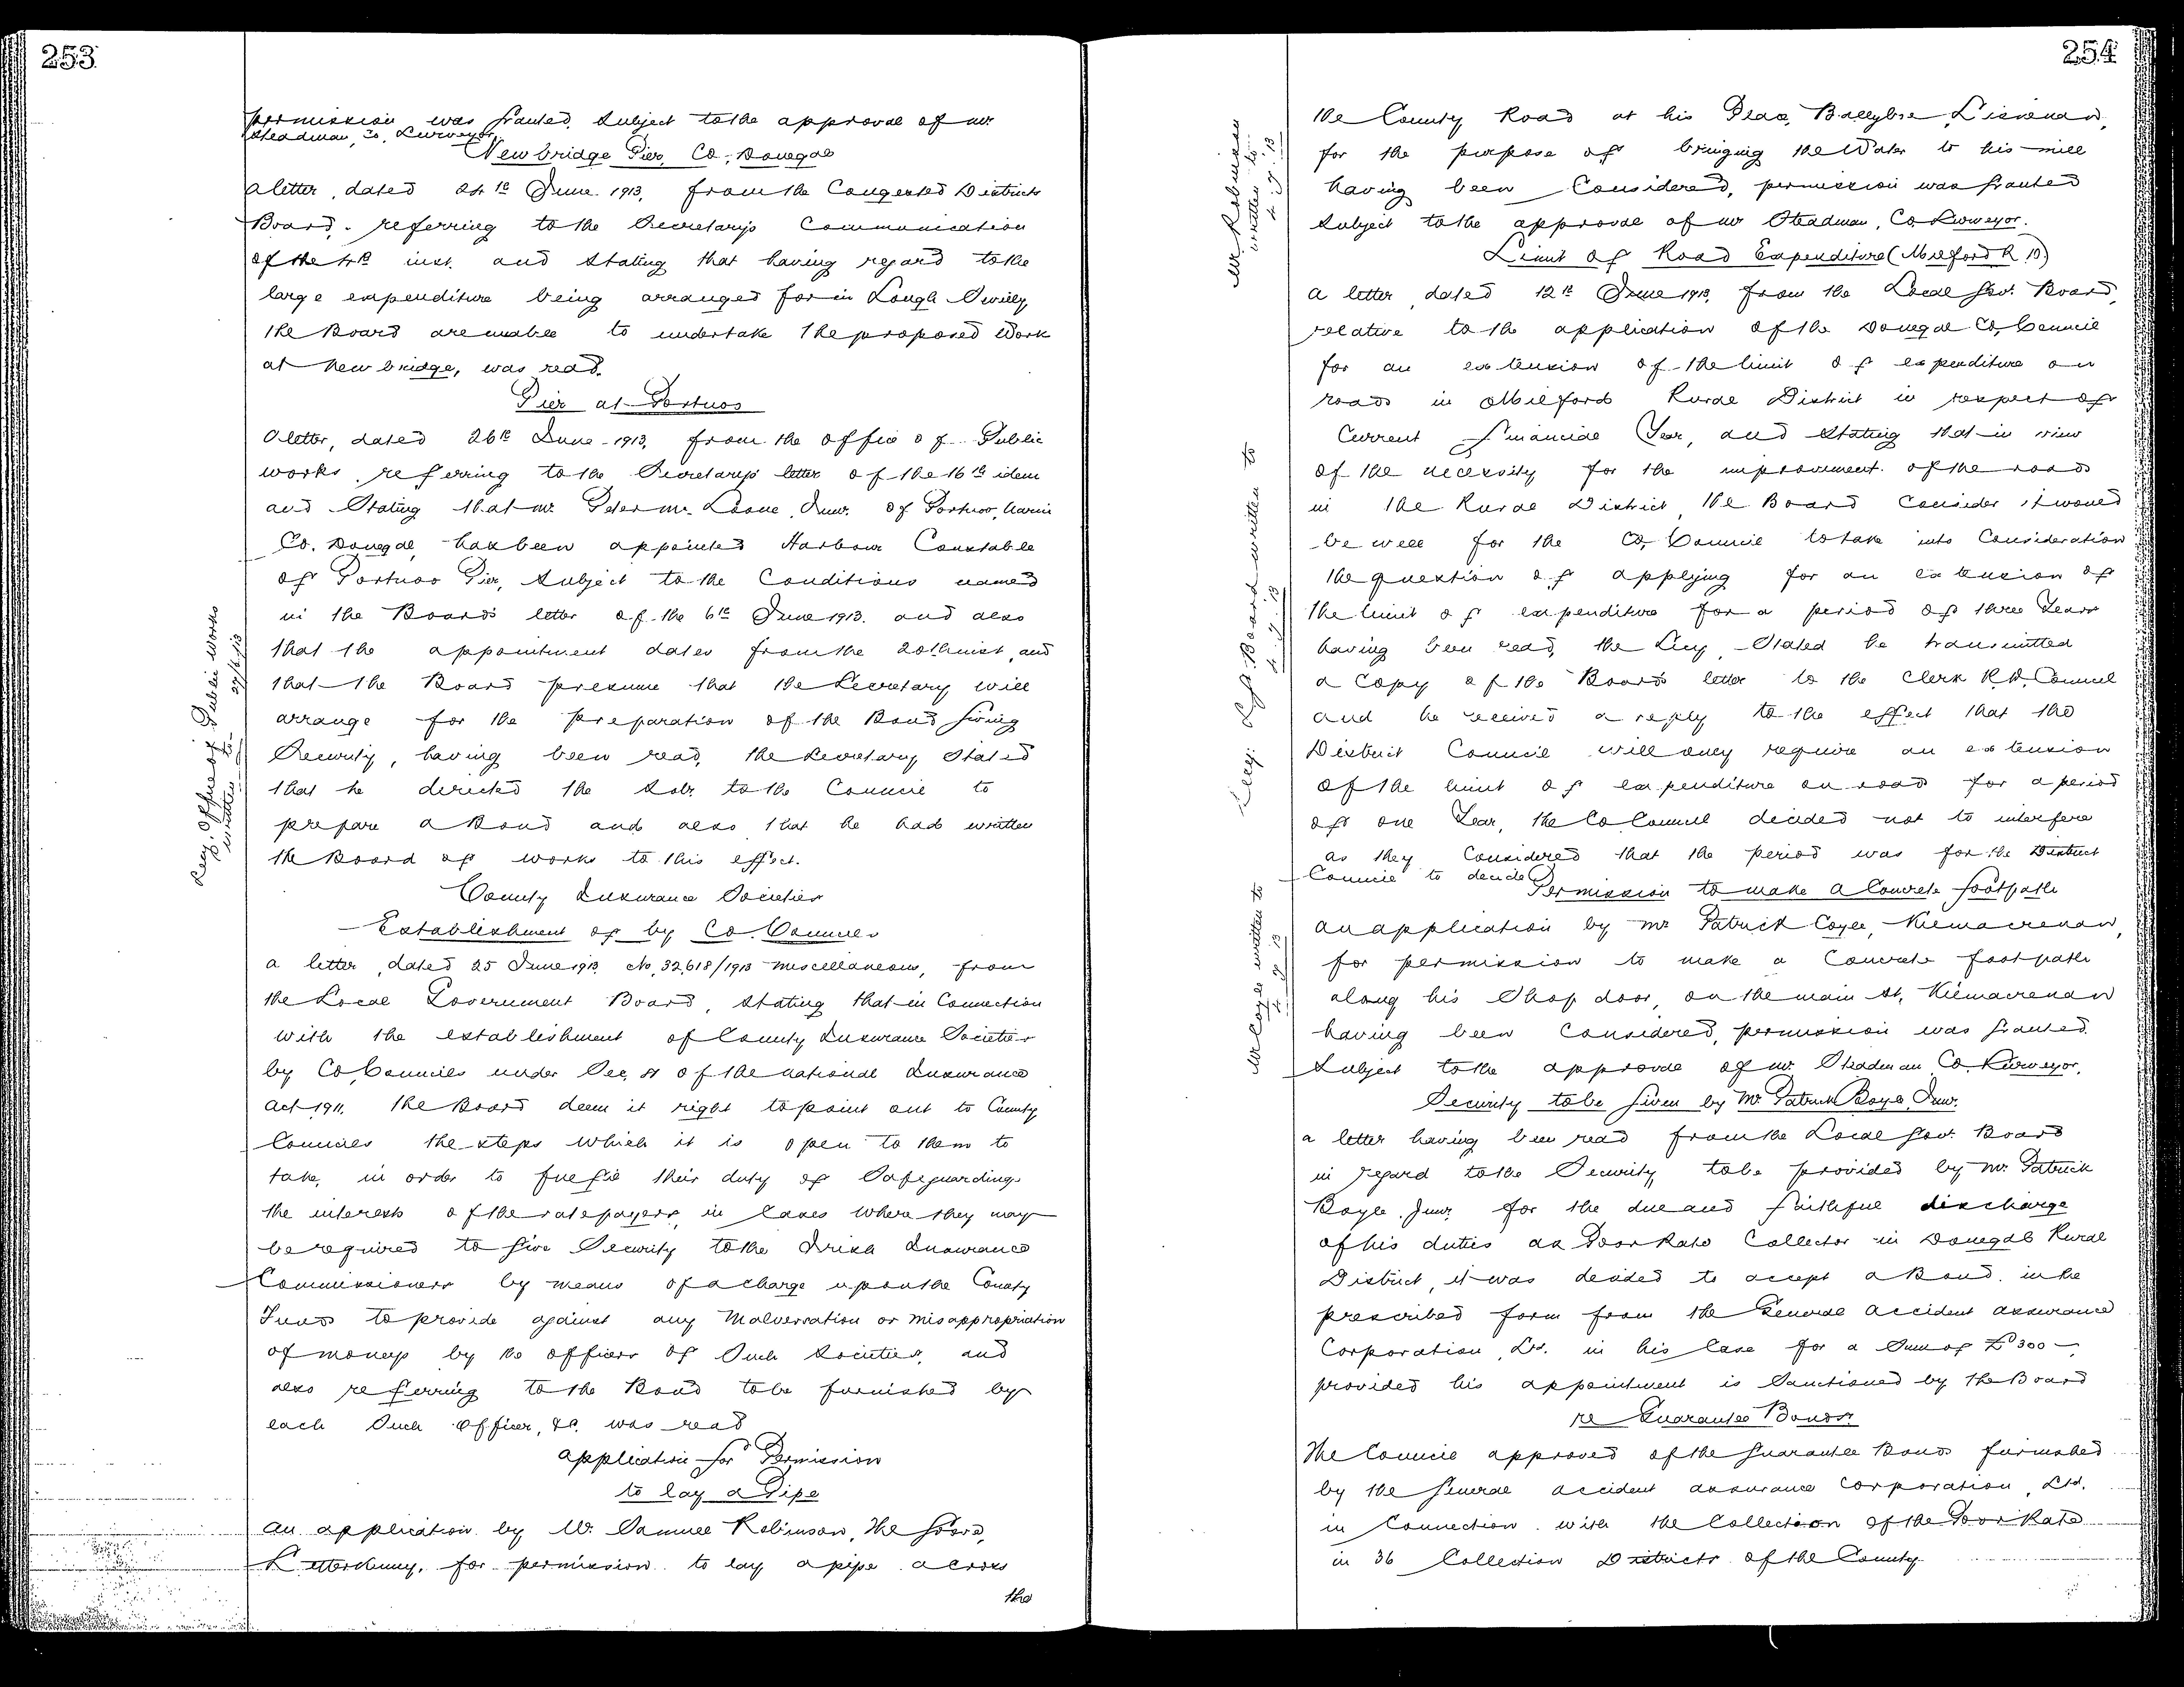 253
permission was granted, subject to the approval of Mr
Steadman, Co. Surveyor.
Newbridge Pier, Co. Donegal
a letter, dated 24th June 1913, from the Congested Districts
Board, referring to the Secretary's Communication
of the 4th inst. and stating that having regard to the
large expenditure being arranged for in Lough Swilly
the Board are unable to undertake the proposed Work
at Newbridge, was read.
Pier at Portnoo
a letter, dated 26th June 1913, from the Office of Public
works, referring to the Secretary's letter of the 16th idem
and Stating that Mr. Peter Mc. Loone, Junr. of Portnoo, Narin
Co. Donegal, has been appointed Harbour Constable
of Portnoo Pier, Subject to the Conditions named
in the Board's letter of the 6th June 1913. and also
that the appointment dates from the 20th inst, and
that the Board presume that the Secretary will
arrange for the preparation of the Bond giving
Security, having been read, the Secretary Stated
that he directed the Solr. to the Council to
prepare a Bond and also that he had written
the Board of works to this effect.
Secy. Office of Public Works
written to
27/6/13
County Insurance Societies
Establishment of by Co. Councils
a letter, dated 25 June 1913, No. 32,618/1913 Miscellaneous, from
the Local Government Board, stating that in Connection
with the establishment of County Insurance Societies
by Co. Councils under Sec. of the National Insurance
Act 1911, the Board deem it right to point out to County
Councils the steps which it is open to them to
take, in order to fulfil their duty of Safeguarding
the interests of the ratepayers, in Cases where they may
be required to give Security to the Irish Insurance
Commissioners by means of a charge upon the County
Funds to provide against any Malversation or misappropriation
of moneys by the officers of Such Societies, and
also referring to the Bond to be furnished by
each Such Officer, &c. was read
application for Permission
to lay a Pipe
An application by Mr. Samuel Robinson, The
Letterkenny, for permission to lay a pipe across
the
254
the County Road at his Place, Lisnenan,
for the purpose of bringing the Water to his mill
having been Considered, permission was granted
Subject to the approval of Mr Steadman, Co. Surveyor.
Mr Robinson
written to
4.7.13
Limit of Road Expenditure (Milford R. D.)
a letter dated 12th June 1913, from the Local Gov. Board,
relative to the application of the Donegal Co. Council
for an extension of the limit of expenditure on
roads in Milford Rural District in respect of
Current financial Year, and Stating that in view
of the necessity for the improvement of the roads
in the Rural District, the Board Consider it would
be well for the Co. Council to take into Consideration
the question of applying for an extension of
the limit of expenditure for a period of three Years
having been read, the Secy. Stated he transmitted
a Copy of the Board's letter to the Clerk R.D. Council
and he received a reply to the effect that the
District Council will only require an extension
of the limit of expenditure on road for a period
of one Year, the Co. Council decided not to interfere
as they Considered that the period was for the District
Council to decide
Secy. L. G. Board written to
4.7.13
Permission to make a Concrete footpath
An application by Mr Patrick Coyle, Kilmacrenan,
for permission to make a Concrete footpath
along his Shop door, on the main St, Kilmacrenan
having been Considered, permission was granted
Subject to the approval of Mr. Steadman Co. Surveyor.
Mr Coyle written to
4.7.13
Security to be given by Mr Patrick Boyle, Junr.
a letter having been read from the Local Gov. Board
in regard to the Security to be provided by Mr. Patrick
Boyle, Junr. for the due and faithful discharge
of his duties as Poor Rate Collector in Donegal Rural
District, it was decided to accept a Bond in the
prescribed form from the General Accident Assurance
Corporation, Ltd. in his Case for a Sum of £300 —,
provided his appointment is Sanctioned by the Board
re Guarantee Bonds.
The Council approved of the Guarantee Bonds furnished
by the General Accident Assurance Corporation, Ltd.
in Connection with the Collection of the Poor Rate
in 36 Collection Districts of the County